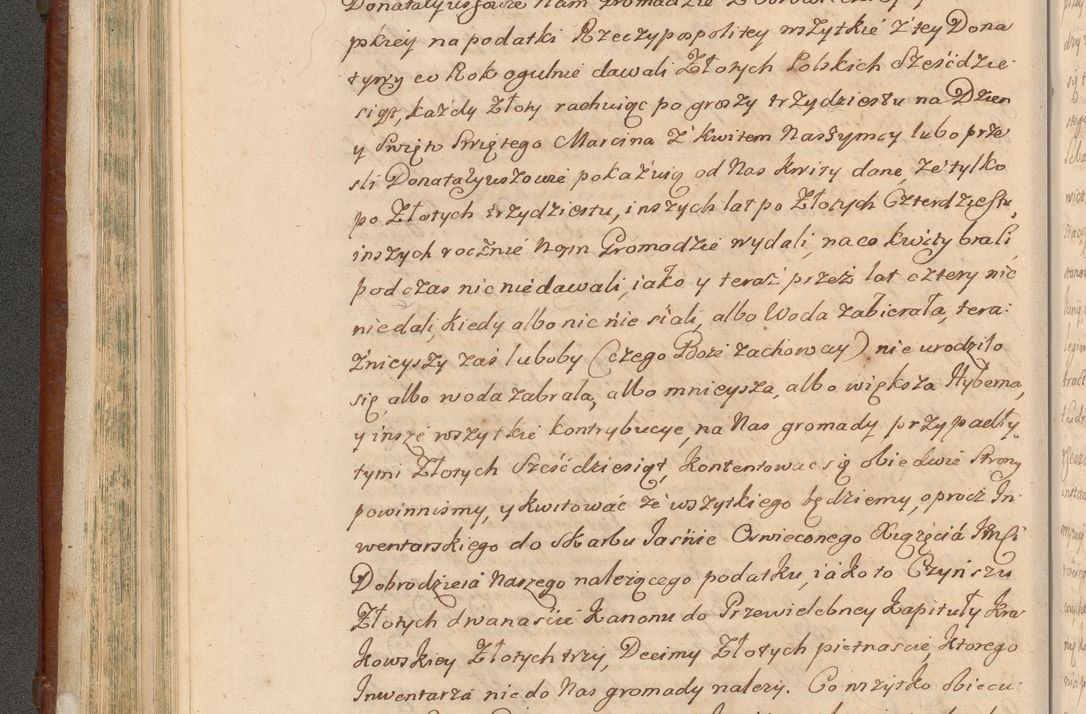 Donatalyuszowie Nam gromadzie
pskiey na podatki Rzeczypospolitey wszytkie z tey Dona
tywy co Rok ogulnie dawali Złotych Polskich Sześćdzie
siąt, każdy Złoty rachuiąc po groszy trzydziestu na Dzien
y Swięto Swiętego Marcina z kwitem Naszym, cy lubo prze
śli Donatalyuszowie pokazuią od Nas kwity dane, że tylko
po Złotych trzydziestu, inszych lat po Złotych Czterdziestu,
inszych rocznie Nam Gromadzie wydali, na co kwity brali,
podczas nic niedawali, iako y teraz przez lat cztery nic
niedali, kiedy albo nic nie siali, albo Woda zabierała, tera:
znieyszy zaś luboby (czego Boże zachoway) nie urodziło
się, albo woda zabrała, albo mnieysza, albo większa Hyberna,
y insze wszytkie kontrybucye, na Nas gromady przypadły,
tymi Złotych Sześćdziesiąt, kontentować się obiedwie Strony
powinnismy, y kwitować ze wszytkiego będziemy, oprocz In
wentarskiego do Skarbu Jaśnie Oswieconego Xiążęcia JMści
Dobrodzieia Naszego należącego podatku, iako to Czynszu
Złotych dwanaście Kanonu do Przewielebney Kapituły Kra
kowskiey Złotych trzy, Decimy Złotych piętnascie, ktorego
Inwentarza nic do Nas gromady należy. Co wszytko obiecu: